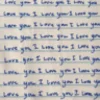 Love you I Love you I Love you
Love you I Love you I Love you
Love you I Love you I Love you
Love you I Love you I Love you
Love you I Love you I Love you
Love you I Love you I Love you
Love you I Love you I Love you
Love you I Love you I Love you